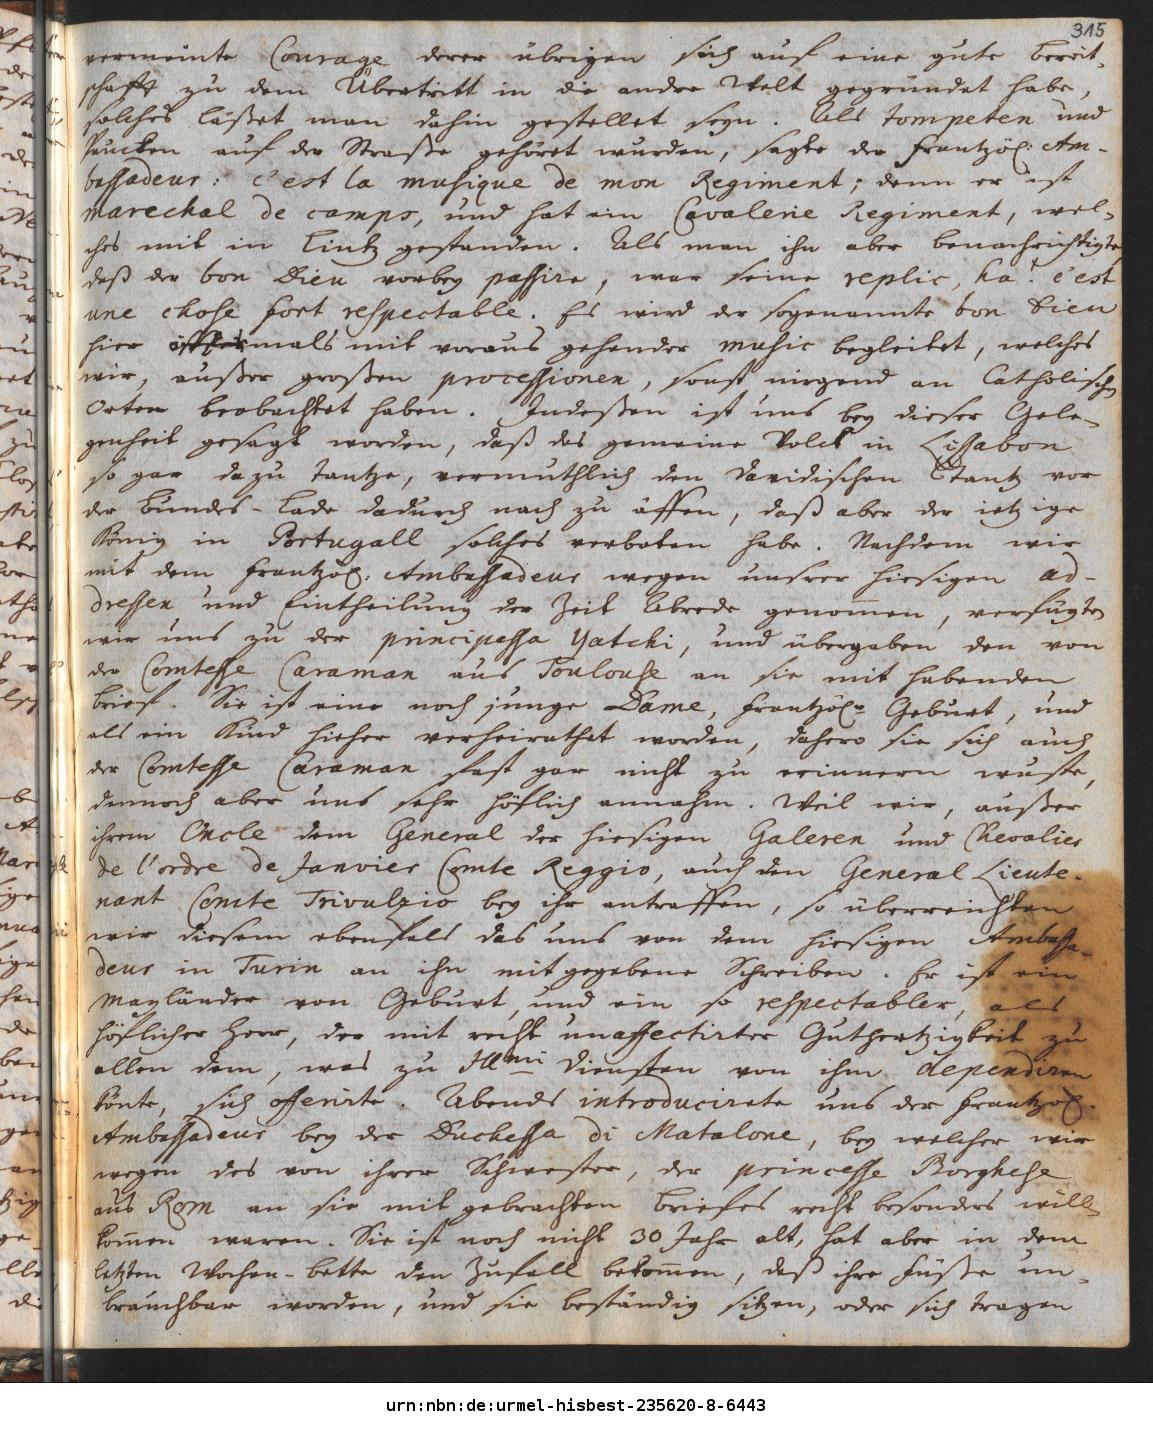 315
vermeinte Courage derer übrigen sich auf eine gute bereit-
schafft zu dem Übertritt in die andre Welt gegründet habe,
solches läßet man dahin gestellet seyn. Als tompeten und
Paucken auf der Straße gehöret wurden, sagte der Frantzöß: Am-
bassadeur: c'est la musique de mon Regiment; denn er ist
marechal de camps, und hat ein Cavalerie Regiment, wel-
ches mit in Lintz gestanden. Als man ihn aber benachrichtigte
daß der bon Dieu vorbey passire, war seine replic, ha! c'est
une chose fort respectable. Es wird der sogenannte bon Dieu
hier mals mit voraus gehender music begleitet, welches
wir, außer großen processionen, sonst nirgend an Catholischen
Orten beobachtet haben. Indeßen ist uns bey dieser Gele-
genheit gesagt worden, daß das gemeine Volck in Lissabon
so gar dazu tantze, vermuthlich den Davidischen Tantz vor
der Bundes-Lade dadurch nach zu äffen, daß aber der ietzige
König in Portugall solches verboten habe. Nachdem wir
mit dem Frantzöß: Ambassadeur wegen unsrer hiesigen ad-
dressen und Eintheilung der Zeit Abrede genommen, verfügten
wir uns zu der principessa Yatchi, und übergaben den von
der Comtesse Caraman aus Toulouse an sie mit habenden
brief. Sie ist eine noch junge Dame, Frantzößr Geburt, und
als ein Kind hieher verheirathet worden, dahero sie sich auch
der Comtesse Caraman fast gar nicht zu erinnern wuste,
dennoch aber uns sehr höflich annahm. Weil wir, außer
ihrem Oncle dem General der hiesigen Galeren und Chevalier
de l'ordre de Janvier Comte Reggio, auch den General Lieute-
nant Comte Trivulzio bey ihr antraffen, so überreichten
wir diesem ebenfals das uns von dem hiesigen Ambassa-
deur in Turin an ihn mitgegebene Schreiben. Er ist ein
Mayländer von Geburt, und ein so respectabler, als
höflicher Herr, der mit recht unaffectirter Guthertzigkeit zu
allen dem, was zu Illmi Diensten von ihm dependiren
könte, sich offerirte. Abends introducirete uns der Frantzöß.
Ambassadeur bey der Duchessa di Matalone, bey welcher wir
wegen des von ihrer Schwester, der princesse Borghese
aus Rom an sie mit gebrachten briefes recht besonders will-
kommen waren. Sie ist noch nicht 30 Jahr alt, hat aber in dem
letzten Wochen-bette den Zufall bekommen, daß ihre Füße un-
brauchbar worden, und sie beständig sitzen, oder sich tragen
urn:nbn:de:urmel-hisbest-235620-8-6443